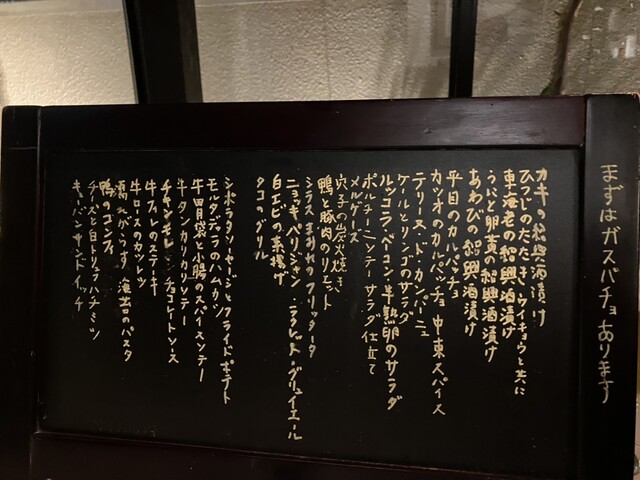 まずはガスパチョあります
カキの紹興酒漬け
ひつじのたたき、ウイキョウと共に
車海老の紹興酒漬け
うにと卵黄の紹興酒漬け
あわびの紹興酒漬け
平目のカルパッチョ
カツオのカルパッチョ 中東スパイス
テリーヌ・ド・カンパーニュ
ケールとリンゴのサラダ
ルッコラ・ベーコン・半熟卵のサラダ
ポルチーニソテーサラダ仕立て
メルゲーズ
穴子の炭火焼き
鴨と豚肉のリモット
シラスまみれのフリッタータ
ニョッキパリジャン ・ラクレット・グリュイエール
白エビの素揚げ
タコのグリル
シポラタソーセージとフライドポテト
モルタデッラのハムカツ
牛胃袋と小腸のスパイスソテー
牛タンカツカリソテー
チキンモレ ・チョコレートソース
牛フィレのステーキ
牛ロースのカツレツ
濡れがらす 漁出口のパスタ
鴨のコンフィ
チーズと白トリュフハチミツ
キューバンサンドイッチ